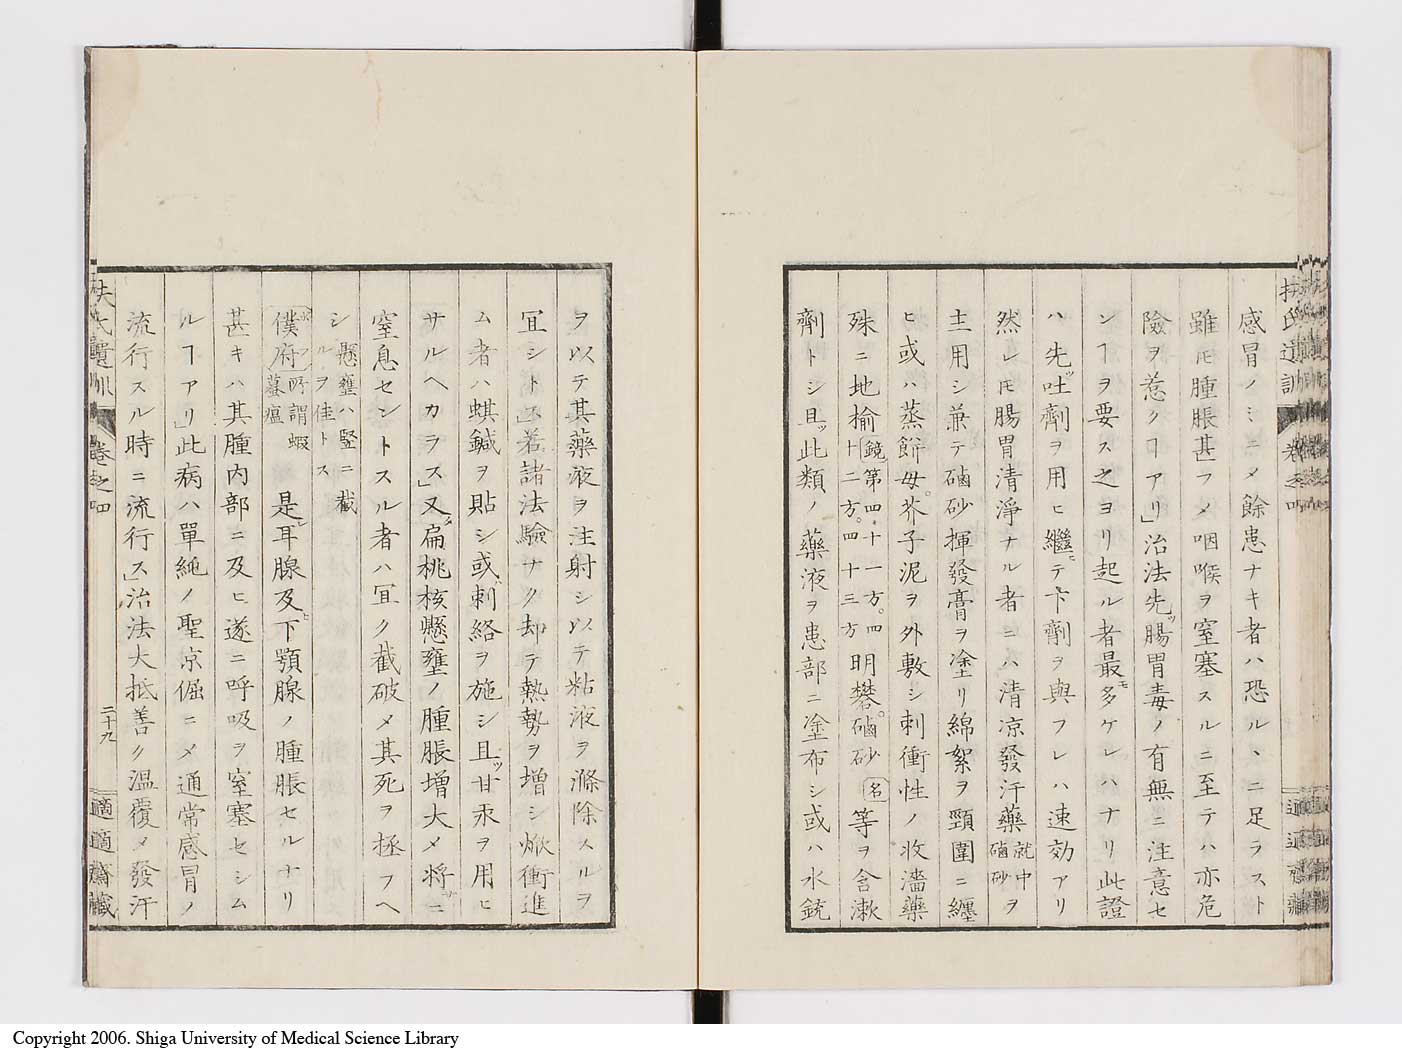 感冒ノミニメ餘患ナキ者ハ恐ルヽニ足ラスト
雖𪜈腫脹甚フメ咽喉ヲ窒塞スルニ至テハ亦危
險ヲ惹クヿアリ」治法先ッ腸胃毒ノ有無ニ注意セ
ンヿヲ要ス之ヨリ起ル者最モ多ケレハナリ此證
ハ先ッ吐劑ヲ用ヒ繼テ下劑ヲ與フレハ速効アリ
然レ𪜈腸胃清淨ナル者ニハ清凉發汗藥就中磠砂ヲ
主用シ兼テ磠砂揮發膏ヲ塗リ綿絮ヲ頸圍ニ纏
ヒ或ハ蒸餅母。芥子泥ヲ外敷シ刺衝性ノ收濇藥
殊ニ地榆鏡第四十一方。四十二方。四十三方明礬。磠砂名等ヲ含漱
劑トシ且ッ此類ノ藥液ヲ患部ニ塗布シ或ハ水銃
ヲ以テ其藥液ヲ注射シ以テ粘液ヲ滌除スルヲ
冝シトス」若諸法驗ナク却テ熱勢ヲ增シ焮衝進
ム者ハ蜞鍼ヲ貼シ或ハ刺絡ヲ施シ且ッ甘汞ヲ用ヒ
サルヘカラス」又扁桃核懸壅ノ腫脹增大メ將ニ
窒息セントスル者ハ冝ク截破メ其死ヲ拯フヘ
シ懸壅ハ竪ニ截ルヲ佳トス
僕府所謂蝦蟇瘟是レ耳腺及ヒ下顎腺ノ腫脹セルナリ
甚キハ其腫内部ニ及ヒ遂ニ呼吸ヲ窒塞セシム
ルヿアリ」此病ハ單純ノ聖京倔ニメ通常感冒ノ
流行スル時ニ流行ス」治法大抵善ク溫覆メ發汗
扶氏遺訓 卷之四
二十九
適適齋藏
Copyright 2006. Shiga University of Medical Science Library